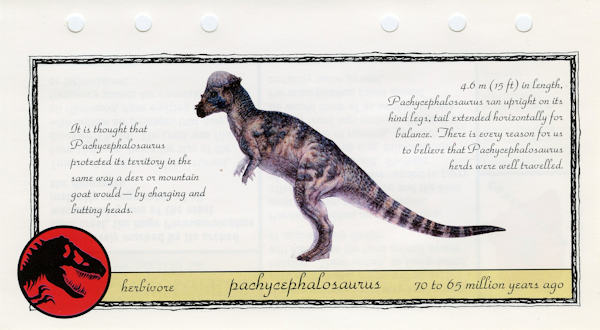 It is thought that
Pachycephalosaurus
protected its territory in the
same way a deer or mountain
goat would — by charging and
butting heads.
4.6 m (15 ft) in length,
Pachycephalosaurus ran upright on its
hind legs, tail extended horizontally for
balance. There is every reason for us
to believe that Pachycephalosaurus
herds were well travelled.
herbivore
pachycephalosaurus
70 to 65 million years ago